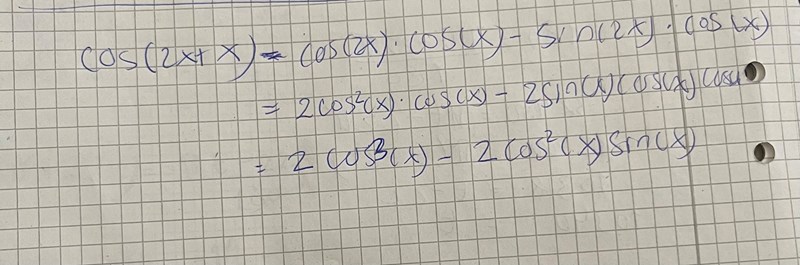 cos(2x+x) = cos(2x)·cos(x) - sin(2x)·cos(x)
= 2cos²(x)·cos(x) - 2sin(x)cos(x)cos
= 2cos³(x) - 2cos²(x)sin(x)